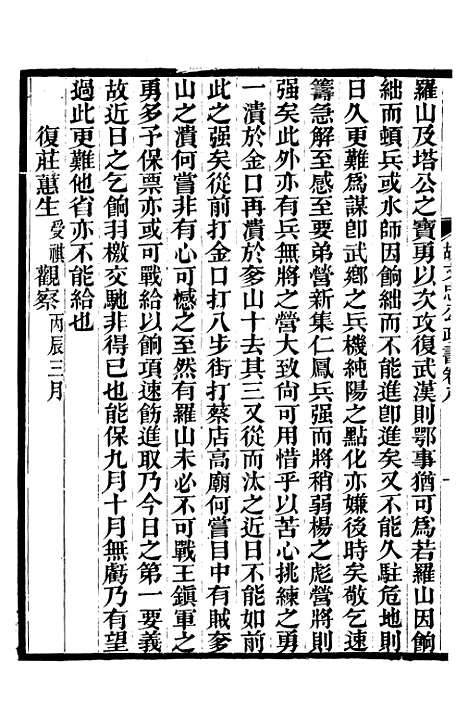 胡文忠公政書卷八
羅山及塔公之寶勇以次攻復武漢則鄂事猶可爲若羅山因餉
絀而頓兵或水師因餉絀而不能進卽進矣又不能久駐危地則
日久更難爲謀卽武鄉之兵機純陽之點化亦嫌後時矣敬乞速
籌急解至感至要弟營新集仁鳳兵强而將稍弱楊之彪營將則
强矣此外亦有兵無將之營大致尚可用惜乎以苦心挑練之勇
一潰於金口再潰於奓山十去其三又從而汰之近日不能如前
此之强矣從前打金口打八步街打蔡店高廟何嘗目中有賊奓
山之潰何嘗非有心可憾之至然有羅山未必不可戰王鎭軍之
勇多予保票亦或可戰給以餉項速飭進取乃今日之第一要義
故近日之乞餉羽檄交馳非得已也能保九月十月無虧乃有望
過此更難他省亦不能給也
復莊蕙生受祺觀察丙辰三月